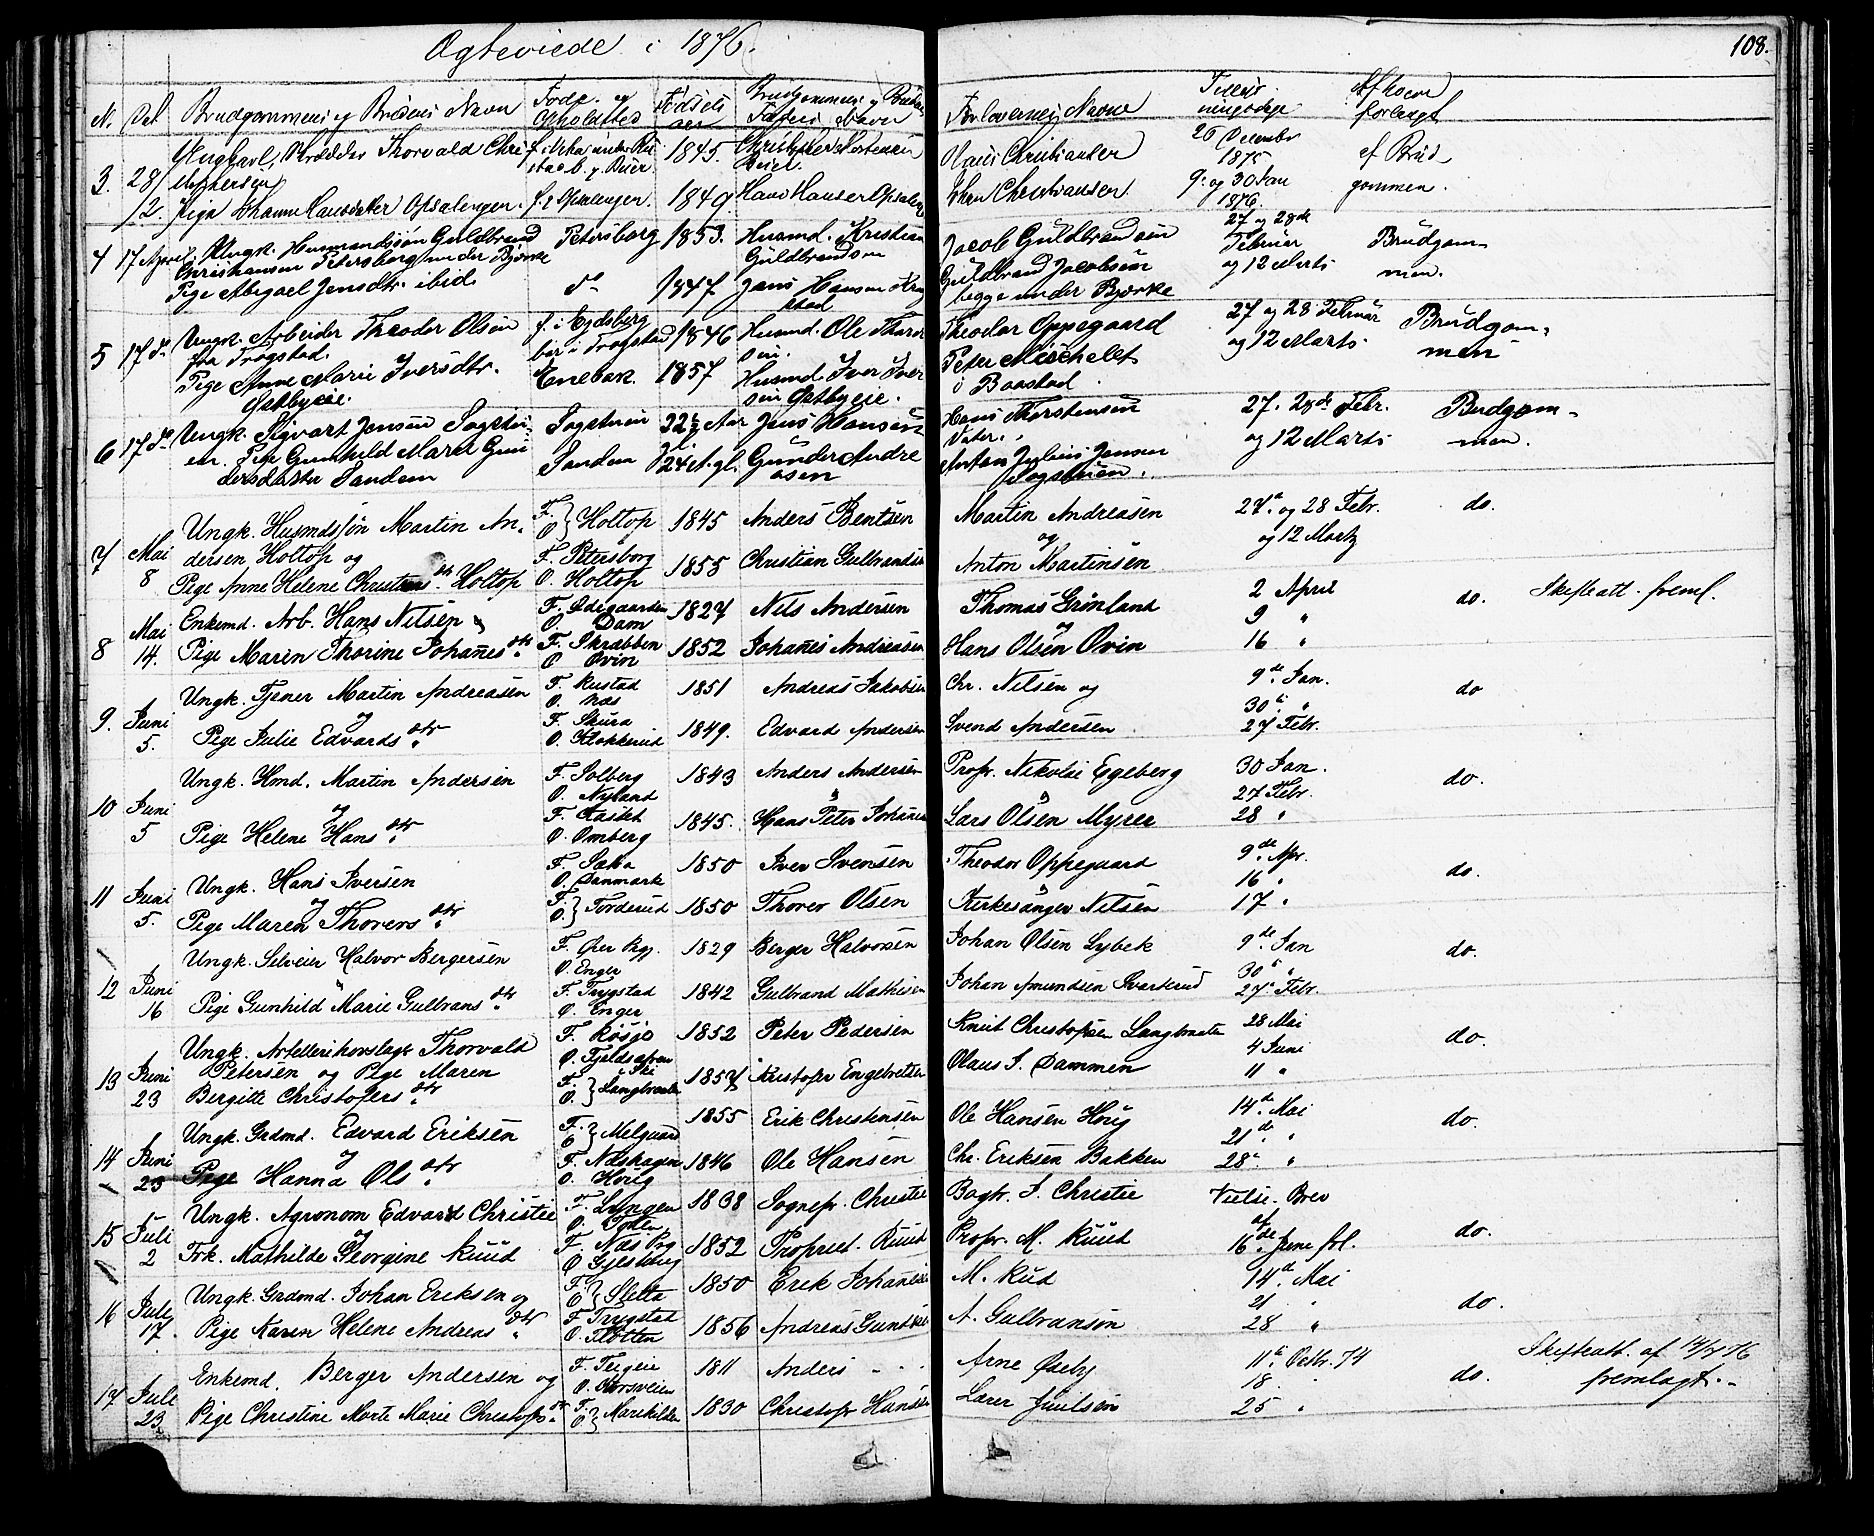 Ægteviede i 1876.
108.
N. Dat. Brudgommens og Brudens Navn Føde- og Opholdsted Fødsels aar Brudgommens og Brudens Fædres Navn Forlovernes Navne Tillysningsdage Af hvem forlangt
3. 28/12. Ungkarl, Thorvald Christophersen 1845. Christopher Mortensen Olaus Christiansen 26 December 1875 af Brudgommen.
Pige Johanne Hansdatter Opsalengen. f. i Opsalengen. 1849. Hans Hansen Opsaleng Johan Christiansen. 9. og 30 Jan 1876.
4 17 April Ungk. Husmandssøn Guldbrand Christiansen Petersborg under Bjørke Petersborg 1853. Husmd. Kristian Guldbrandsen Jacob Guldbrandsen 27 og 28de Februar og 12 Marts Brudgommen.
Pige Abigael Jensdtr. ibid. do 1847 Jens Hansen Guldbrand Jacobsen begge under Bjørke
5 17 do Ungk. Arbeider Theodor Olsen fra Trøgstad. f. i Eydsberg bor i Trøgstad 1846 Husmd. Ole Thoresen. Theodor Oppegaard 27 og 28 Februar og 12 Marts. Brudgommen
Pige Anne Marie Iversdtr. Østbyeie. Enebak. 1857 Husmd. Iver Iversen Østbyeie. Peter Michelet i Baastad.
6 17 do Ungk. Sigvart Jensen Sogstuen. Sogstuen 22½ Aar Jens Hansen Hans Thorstensen 27. 28de Febr. og 12 Marts Brudgommen.
Pige Gunhild Marie Gundersdatter Sandem Sandem 24 A. gl. Gunder Andreasen Anton Julius Jensen Sogstuen.
7 Mai 8 Ungk. Husmdssøn Martin Andersen Holtop og F. O. } Holtop 1845 Anders Bentsen Martin Andreasen og 27de og 28 Febr. og 12 Marts do.
Pige Anne Helene Christiansdtr Holtop F. Petersborg O. Holtop 1855 Christian Gulbrandsen Anton Martinsen
8 Mai 14. Enkemd. Arb. Hans Nilsen og F. Ødegaarden O. Dam 1827 Nils Andersen Thomas Grønland og 2 April 9 " 16 " do. Skifteatt. freml.
Pige Maren Thorine Johannesdtr. F. Skrabben O. Ovin 1852 Johannes Andreasen Hans Olsen Ovin
9. Juni 5. Ungk. Tjener Martin Andreasen og F. Rustad O. Næs 1851 Andreas Jakobsen Chr. Nilsen og 9de Jan. 30te " 27 Febr. do
Pige Julie Edvardsdtr. F. Skura O. Klokkerud 1849. Edvard Andersen Svend Andersen
10 Juni 5 Ungk. Hmd. Martin Andersen og F. Solberg O. Nyland 1843 Anders Andersen Propr. Nikolai Egeberg 30 Jan. 27 Febr. 28 " do.
Pige Helene Hansdtr. F. Kaslet O. Omberg 1845. Hans Peter Johannes Lars Olsen Myrer
11 Juni 5. Ungk. Hans Iversen og F. Saka O. Danmark 1850 Iver Svensen Theodor Oppegaard 9de Apr. 16 " 17 " do.
Pige Maren Thoversdtr. F. O. } Torderud 1850 Thover Olsen Kirkesanger Nilsen
12 Juni 16 Ungk. Selveier Halvor Bergersen F. Øier Pgj. O. Enger 1829 Berger Halvorsen Johan Olsen Lybek 9de Jan 30te " 27de Febr. do.
Pige Gunhild Marie Gulbransdtr. F. Trygstad O. Enger 1842 Gulbrand Mathisen Johan Amundsen Svarterud
13 Juni 23 Ungk. Thorvald Petersen og Pige Maren F. Røsjø 1852 Peter Pedersen Knut Christofsen Langbraaten 28 Mai 4 Juni 11 " do.
Bergitte Christofersdtr. F. O. } Langbraaten 1857 Kristofer Engebretsen Olaus J. Dammen
14 Juni 23 Ungk. Grdmd. Edvard Eriksen og F. O. } Melgaard 1855 Erik Christensen Ole Hansen Houg 14de Mai 21de " 28de " do.
Pige Hanna Olsdtr. F. Næshagen O. Houg 1846 Ole Hansen Chr. Eriksen Bakken
15 Juli 2 Ungk. Agronom Edvard Christie og F. Lyngen O. Toten 1838 Sognepr. Christie Bagtr. J. Christie Vielse-Brev af 16de Juni frl. do.
Frk. Mathilde Georgine Ruud F. Næs Pgj O. Gjelsberg 1852 Propriet. Ruud Propr. M. Ruud
16 Juli 17. Ungk. Grdmd. Johan Eriksen og F. O. } Sletta 1850 Erik Johannesen M. Rud 14de Mai 21 " 28 " do.
Pige Karen Helene Andreasdtr. F. Trygstad O. Slotten 1856 Andreas Gundersen A. Gulbransen
17 Juli 23. Enkemd. Berger Andersen og F. Teigeie O. Korsveien 1811 Anders - - - Arne Øseby 11te Octbr. 74 18. 25 " do. Skifteatt. af 14/7 76 fremlagt.-
Pige Christine Marte Marie Christofsdtr. F. O. } Marikilden 1830 Christofr Hansen Larer Juulsen